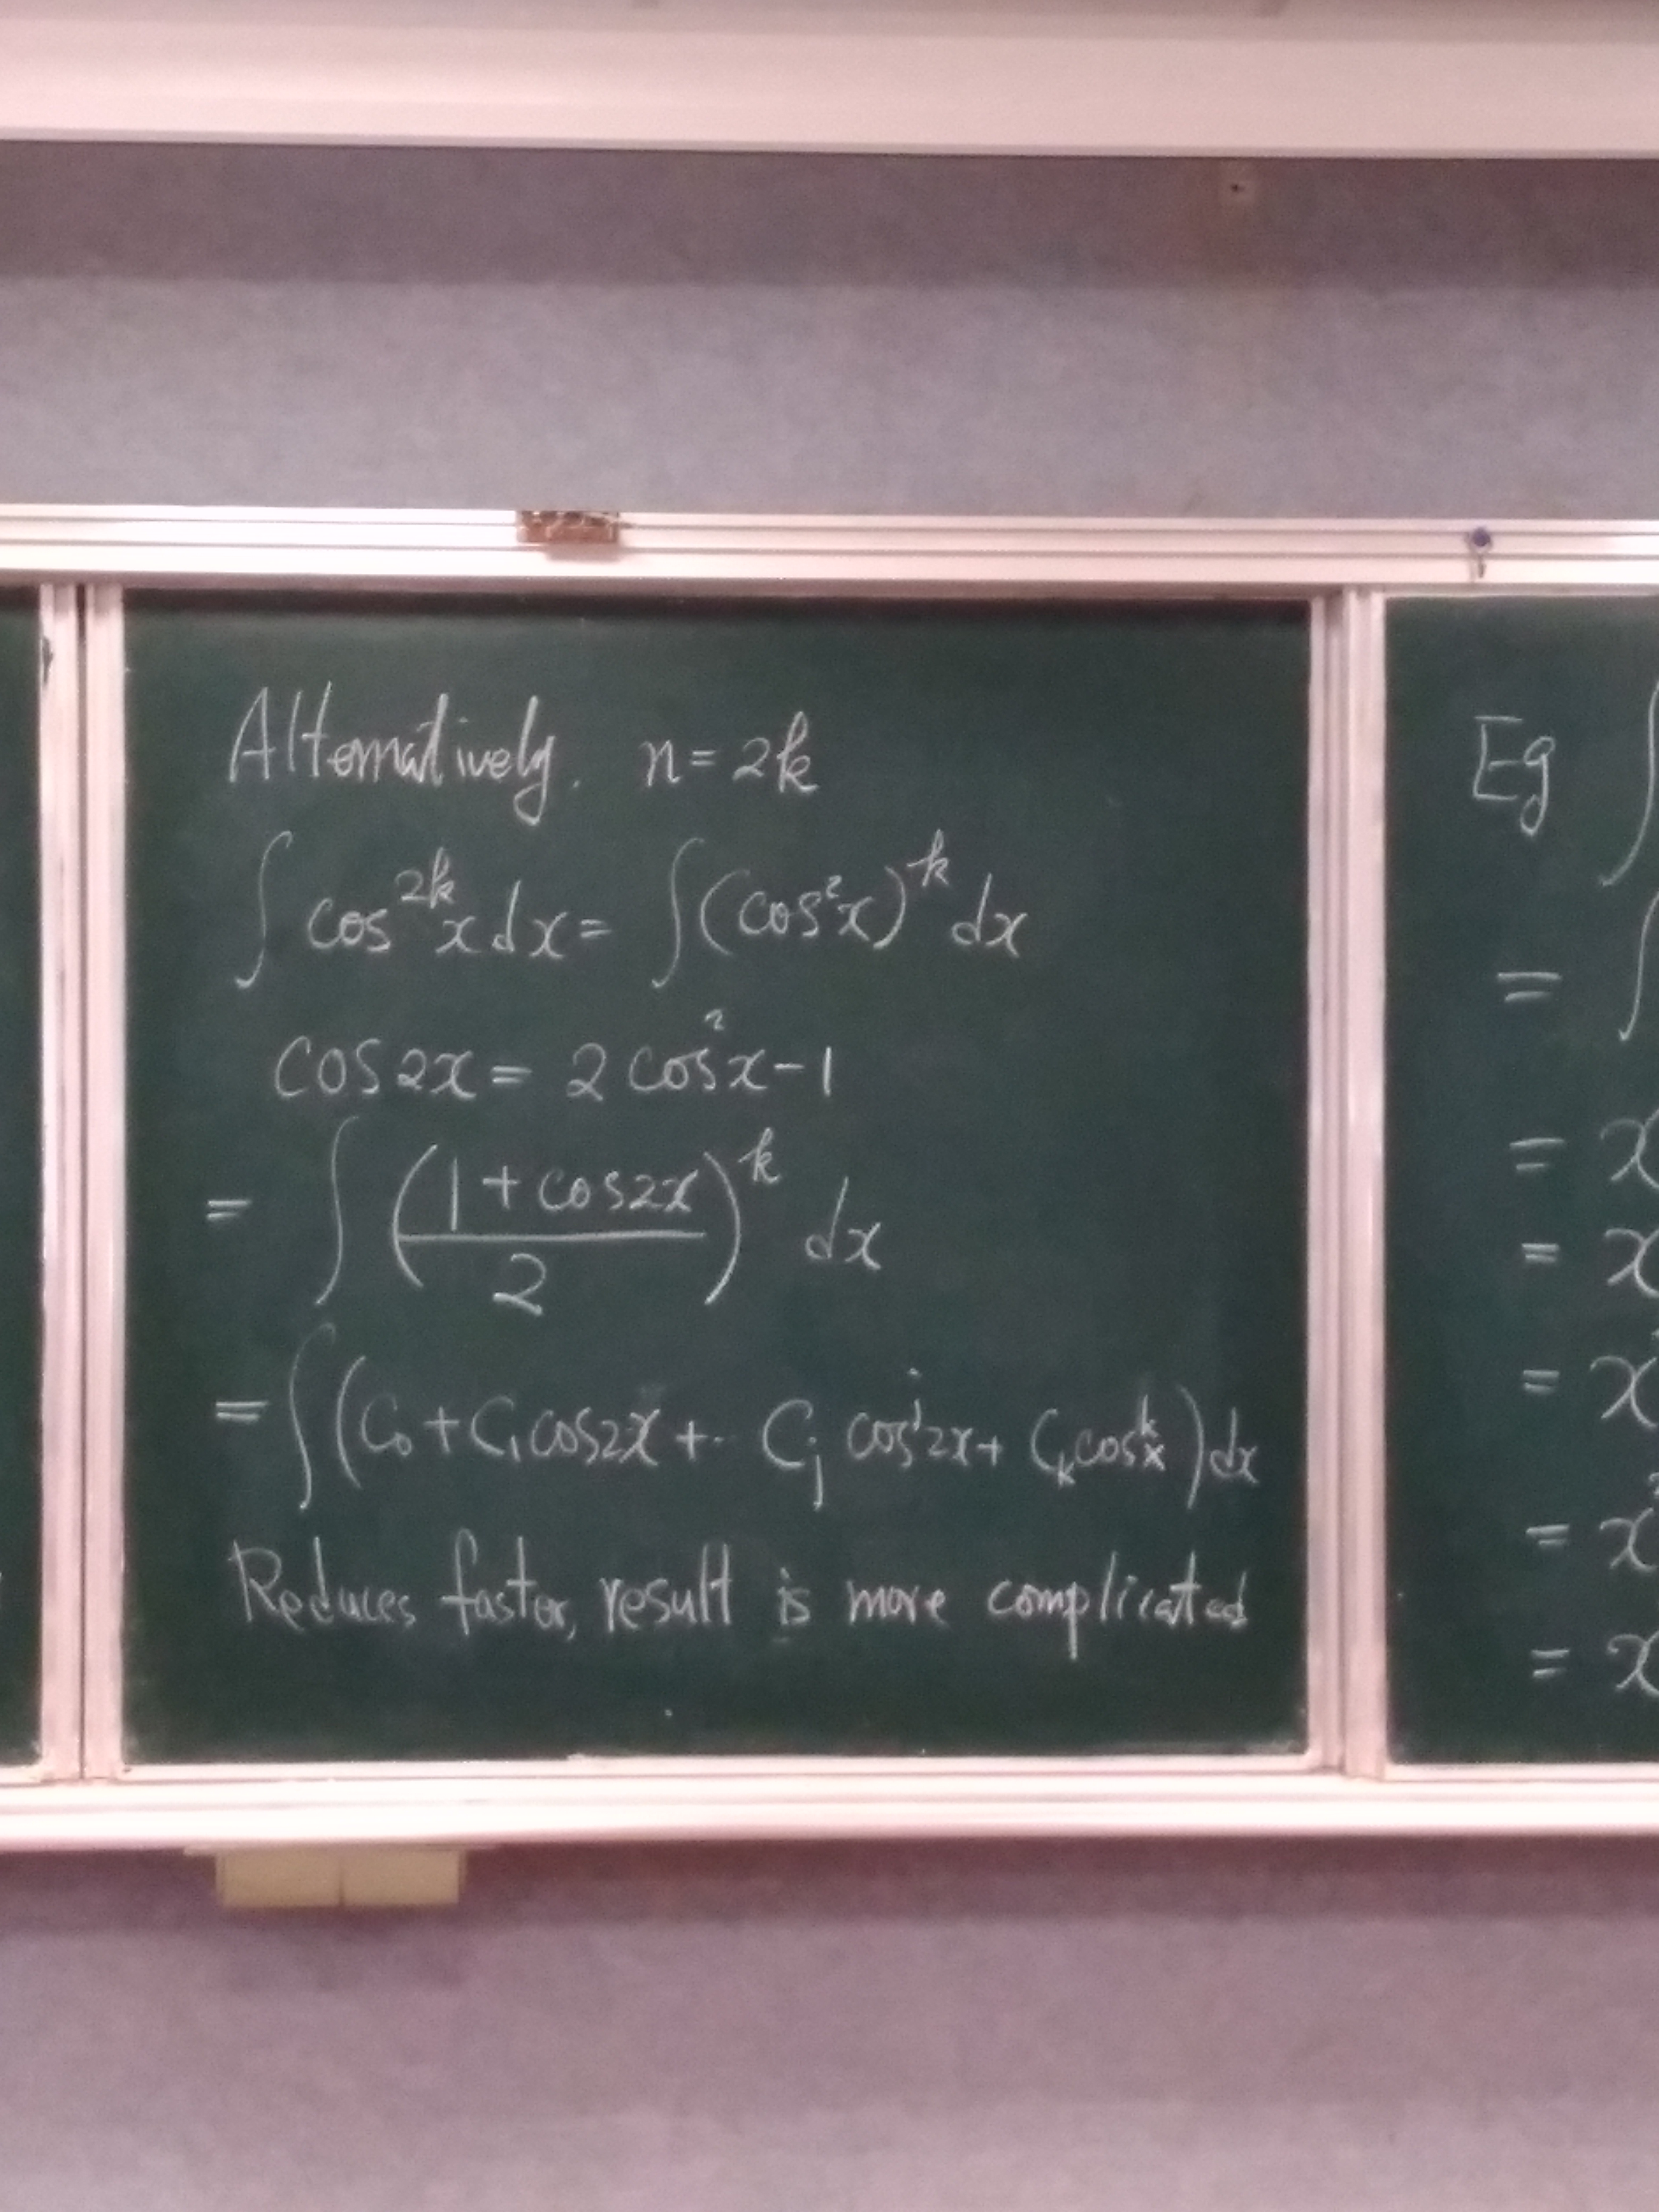 Alternatively. n = 2k
∫ cos^{2k} x dx = ∫ (cos² x)^k dx
cos 2x = 2 cos² x - 1
= ∫ ((1 + cos 2x)/2)^k dx
= ∫ (C₀ + C₁ cos 2x + ·· C_j cos^j 2x + C_k cos^k x) dx
Reduces faster, result is more complicated
Eg ∫
= ∫
= x
= x
= x
= x
= x